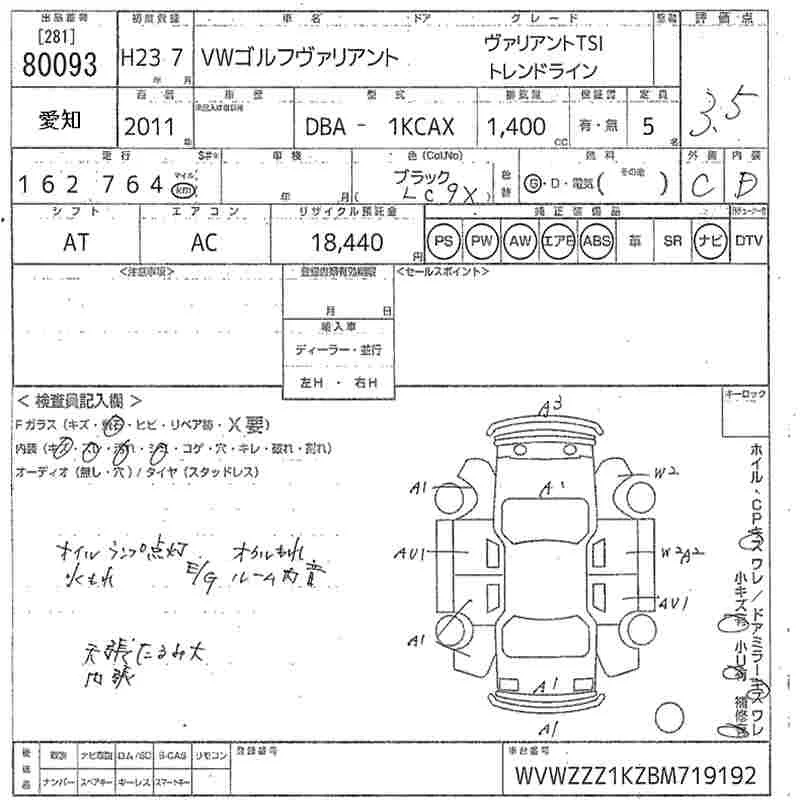 出品番号 初度登録 車名 ドア グレード 評価点
[281]
80093 H23 7 VWゴルフヴァリアント ヴァリアントTSI
トレンドライン
年 月
3.5
愛知 車歴 型式 排気量 保証書 定員
2011 DBA - 1KCAX 1,400 有・無 5
年 CC 名
走行 車検 色(Col.No) 燃料 外装 内装
162 764 マイル km 年 月 ブラック LC9X G・D・電気(その他 ) C D
シフト エアコン リサイクル預託金 純正装備品
AT AC 18,440 円 PS PW AW エアB ABS 革 SR ナビ DTV
<注意事項> <セールスポイント>
月 日
輸入車
ディーラー・並行
左H ・ 右H
<検査員記入欄> キーロック
Fガラス(キズ・飛石・ヒビ・リペア跡・X要)
内装(キズ・スレ・汚れ・シミ・コゲ・穴・キレ・破れ・割れ)
オーディオ(無し・穴)/タイヤ(スタッドレス)
オイルランプ点灯 オイルもれ
水もれ E/G ルーム内音
天張たるみ大
内張
A3
A1
A1
W2
AU1
W2A2
AU1
A1
A1
A1
ホイル・CPキズワレ/ドアミラーキズワレ
小キズ有 小凹有 補修有
後送品 取説 ナビ取説 ROM/SD B-CAS リモコン 登録番号 車台番号
ナンバー スペアキー キーレス スマートキー WVWZZZ1KZBM719192